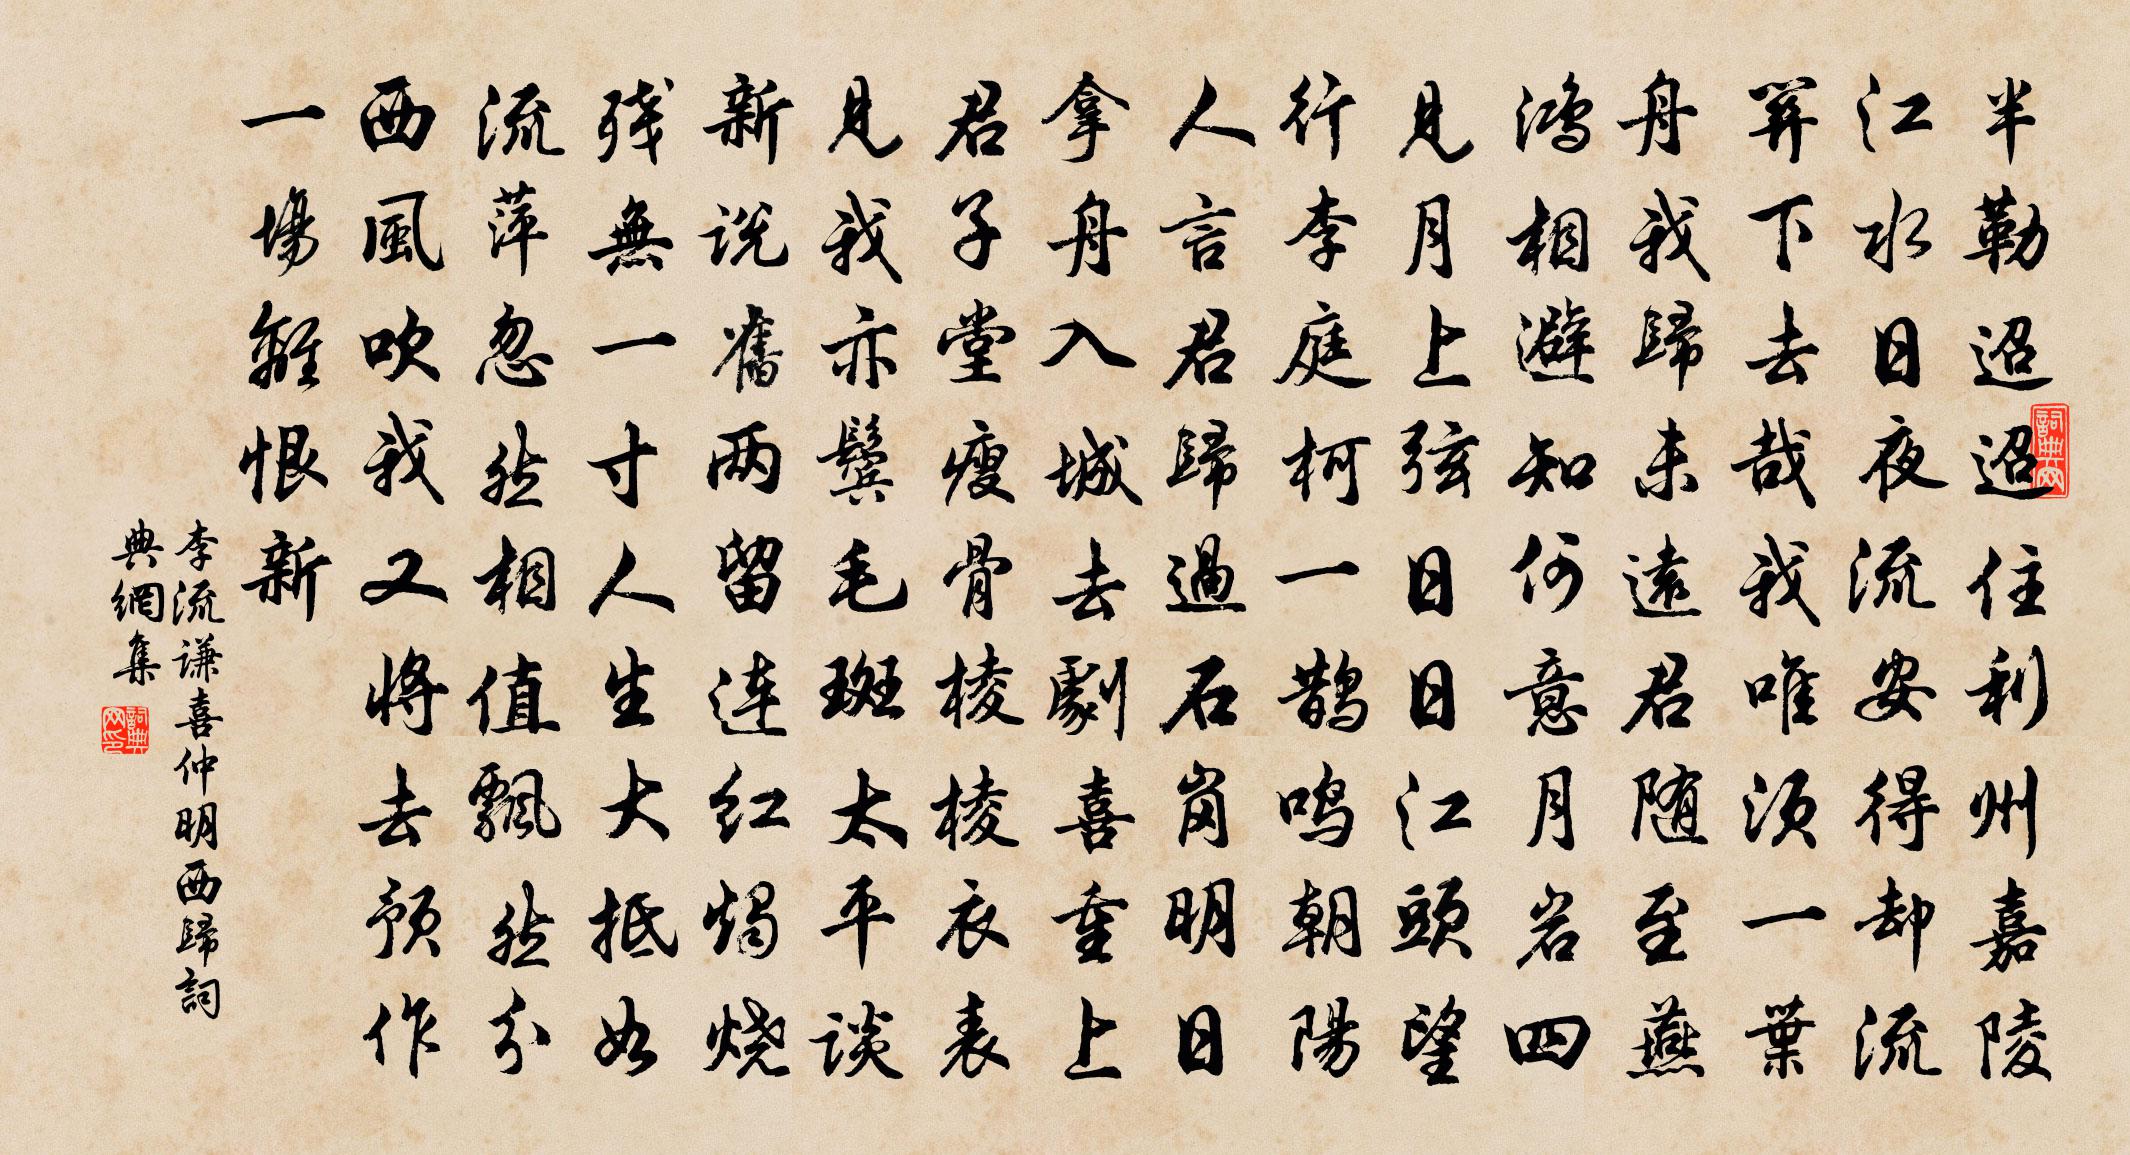 半勒迢迢住利州嘉陵
江水日夜流安得却流
箳下去哉我唯须一葉
舟我歸未遠君随至燕
鴻相避知何意月岩四
見月上弦日日江頭望
行李庭柯一鹊鸣朝陽
人言君歸過石崗明日
拿舟入城去劇喜重上
君子堂瘦骨棱棱衣表
見我亦鬓毛斑太平谈
新说舊两留连红燭烧
残無一寸人生大抵如
流萍忽然相值飘然分
西風吹我又将去预作
一場離恨新
李流谦喜仲明西歸詞
典網集
詞典网
詞典网印